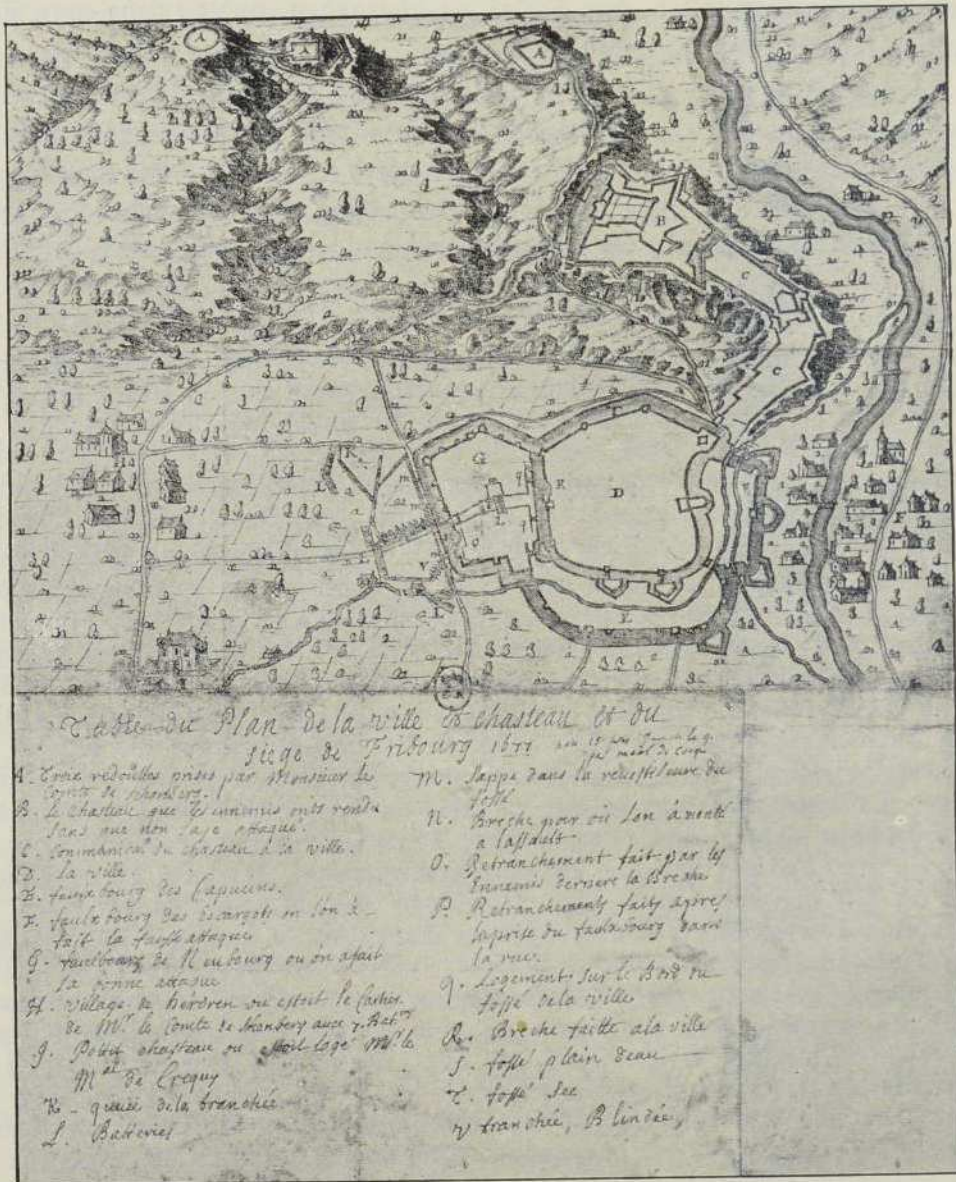 Table du Plan de la ville et chasteau et du
siege de Fribourg 1677
A. Trois redouttes prises par Monsieur le
Comte de
B. Le chasteau que les ennemis onts rendu
sans que non laje attaque.
C. Communica.on du chasteau à la ville.
D. La ville.
E. fauxbourg des Capucins.
F. faulxbourg des Escargots ou lon à
fait la fausse attaque
G. faulbourg de Neubourg ou on afait
la bonne attaque
H. village de herdren ou estoit le Cartier
de Mr. le Comte de avec 7. Bat.
J. Pettit chasteau ou estoit logé Mr. le
Mal de Crequy
K - queue de la tranchée
L. Batteries
M. Sappe dans la du
fossé
N. Breche par où lon à monté
a lassault
O. Retranchement fait par les
Ennemis derriere la Breche
P. Retranchements faits apres
la prise du faulxbourg dans
la rue.
q. Logement sur le Bord du
fossé de la ville
R. Breche faitte a la ville
S. fossé plain deau
T. fossé sec
V tranchée, Blindée,
A
A
A
B
C
C
D
E
E
F
G
L